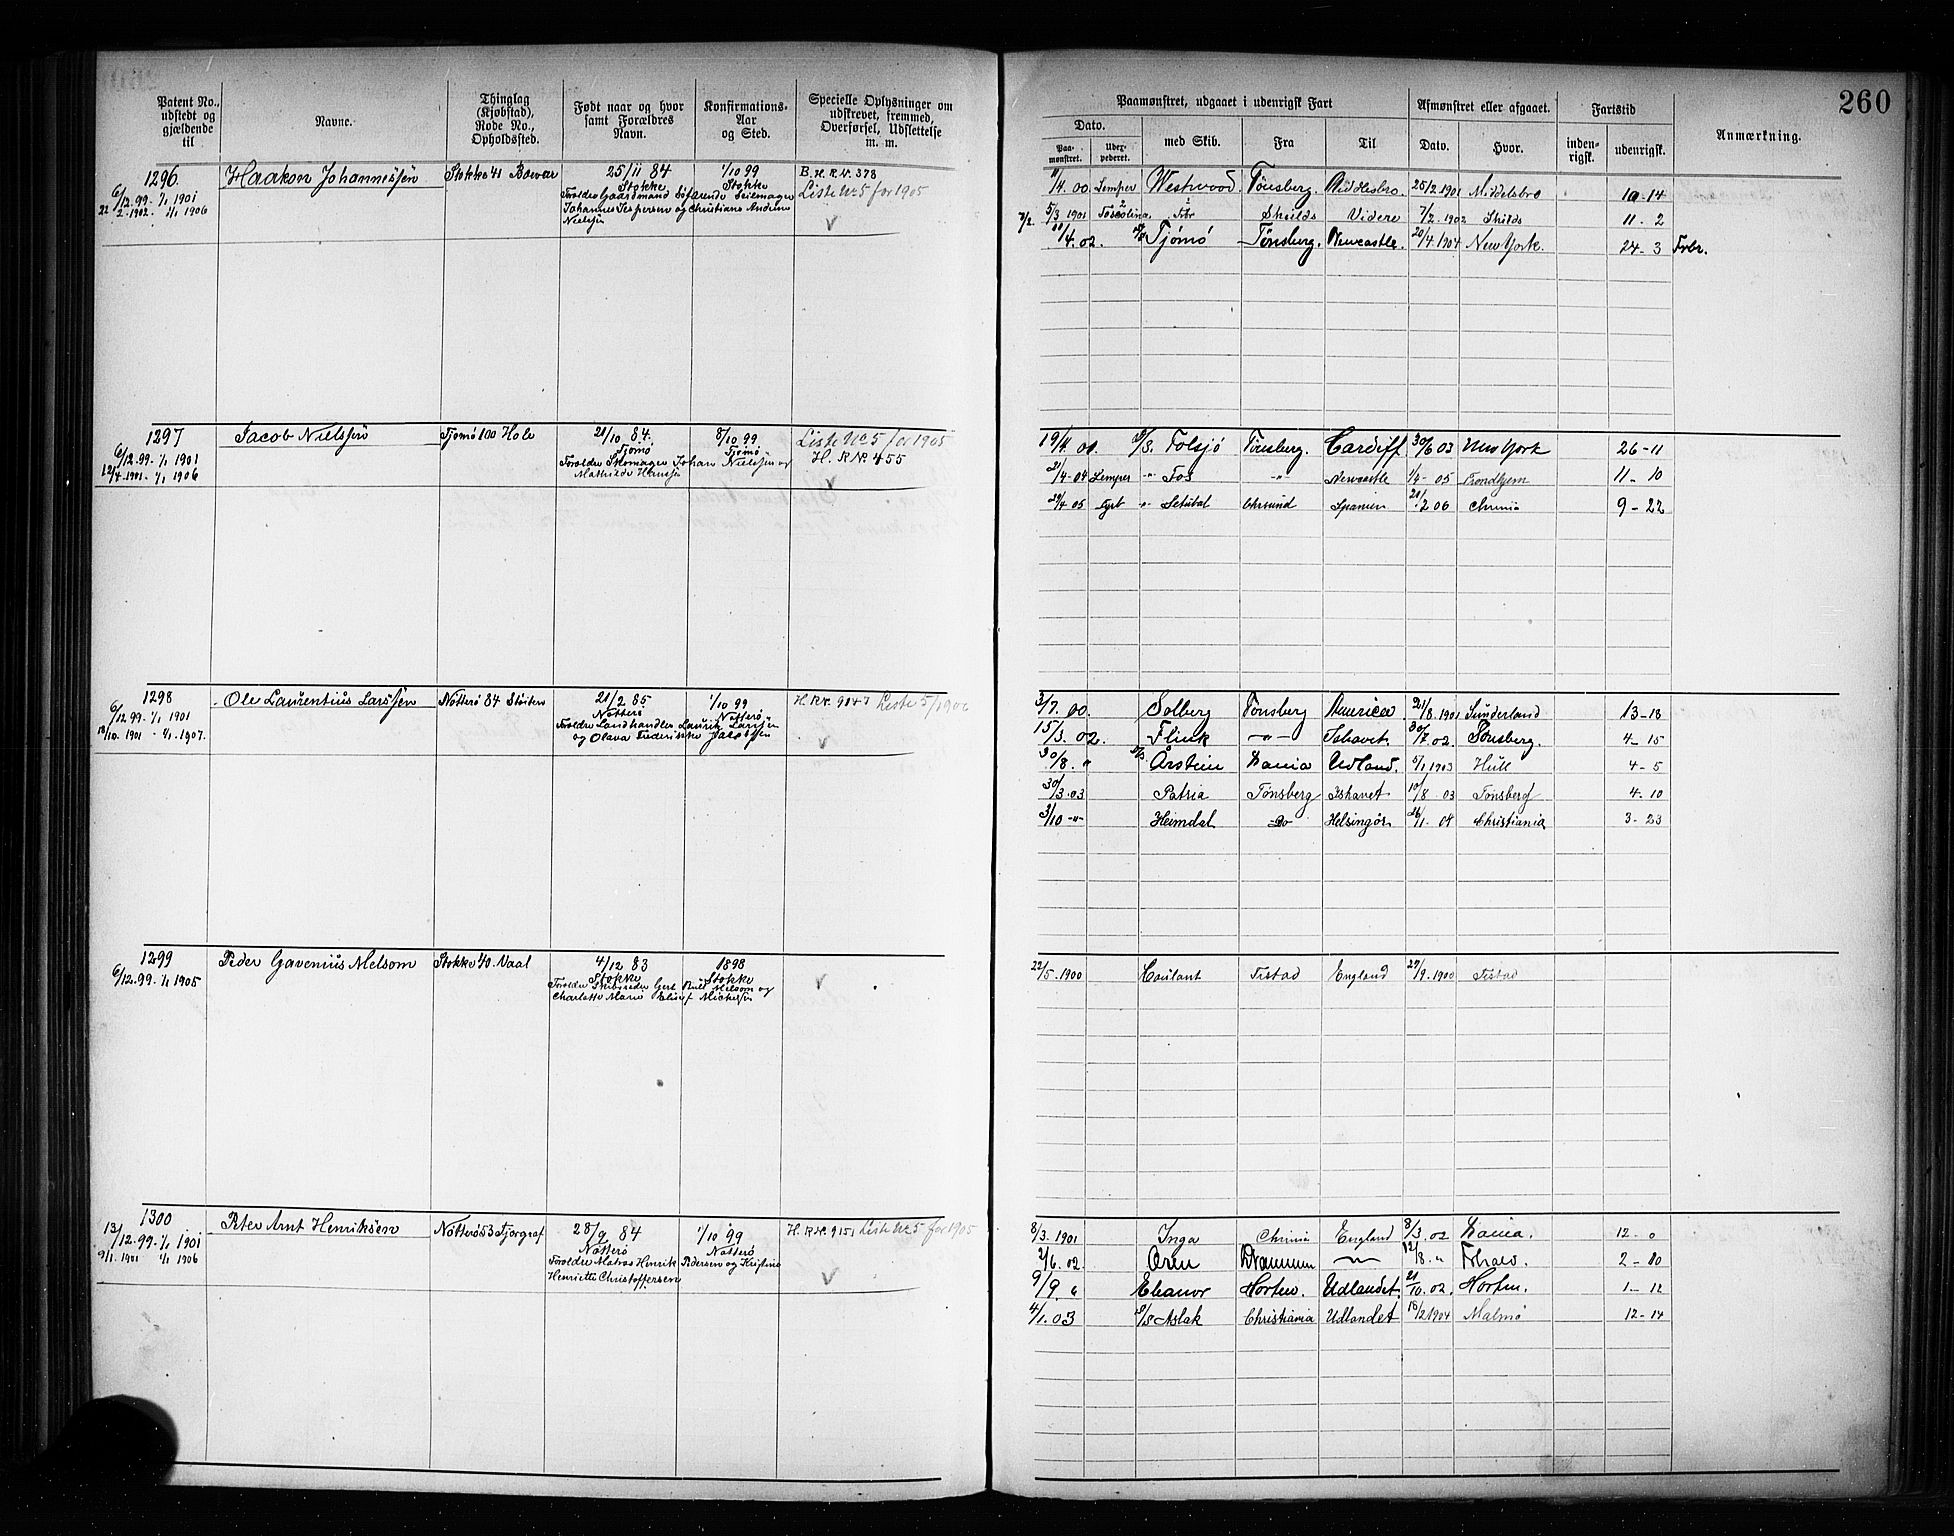 260
Patent No., udstedt og gjældende til
Navne.
Thinglag (Kjøbstad), Rode No., Opholdssted.
Født naar og hvor samt Forældres Navn.
Konfirmations-Aar og Sted.
Specielle Oplysninger om udskrevet, fremmed, Overførsel, Udslettelse m. m.
Paamønstret, udgaaet i udenrigsk Fart
Afmønstret eller afgaaet.
Fartstid
Anmærkning.
Dato.
Paa-mønstret.
med Skib.
Fra
Til
Dato.
Hvor.
inden-rigsk.
udenrigsk.
1296.
Haakon Johannessen
Stokke 41
25/11 84
1/10 99
B. H. R. N. 378
6/12.99. 1/1 1901
Stokke
Stokke
Liste No 5 for 1905
2. 1902. 1/1 1906
Forældre Gaardmand
Johannes Jespersen og Christiane Andrine
Nielsen
11/4. 00. Westwood. Tønsberg. Middlesbro. 25/2 1901 Middelsbro 10-14
5/3 1901 Shields Videre 7/2. 1902 Shilds 11-2
4.02. Tjømø Tønsberg. Newcastle. 20/4 1904 New York. 24-3
1297
Jacob Nielsen
Tjømø 100 Hole
21/10 84.
8/10 99
Liste No 5 for 1905
6/12.99. 1/1 1901
Tjømø
Tjømø
H. R. No 455
12/4 1901. 1/1 1906
Forældre Skomager Johan Nielsen og
Mathilde Hansen
19/4. 00. S/S. Folsjø Tønsberg. Cardiff 30/6 03 New York 26-11
21/4-04 Lemper " Fos " Newcastle 1/4-05 Trondhjem 11-10
29/4 05 " Setubal Chrsund Spanien 21/2 06 Chrania 9-22
1298
Ole Laurentius Larssen
Nøtterø 84
21/2 85
1/10 99
H. R. N. 9047 Liste 5/1906
6/12.99. 1/1 1901
Nøtterø
Nøtterø
/10. 1901 1/1.1907.
Forældre Landhandler Laurits Larssen
og Olava Frederikke Jacobsen
3/7. 00. Solberg Tønsberg America 21/8.1901 Sunderland 13-18
15/3. 02. Flink " Ishavet. 30/7. 02. Tønsberg. 4-15
30/8. " Årstein Udland. 5/1 1903 Hull 4-5
30/3.03 Patria Tønsberg Ishavet 10/8 03 Tønsberg 4-10
3/10 " Heimdal Do Helsingør 26/1. 04 Christiania 3-23
1299
Peder Gavenius Melsom
Stokke 40. Vaal
4/12 83
1898
6/12.99. 1/1 1905
Stokke
Stokke
Forældre Skibsreder Gert Bull Melsom og
Charlotte Marie
22/5. 1900 England 29/9. 1900
1300
Peter Arnt Henriksen
Nøtterø 53
28/9 84
1/10 99
H. R. N. 9151 Liste No 5 for 1905
13/12.99. 1/1 1901
Nøtterø
Nøtterø
9/1. 1901 1/1 1906
Forældre Matros Henrik Pedersen og Kristine
Henriette Christoffersen
8/3. 1901 Inga England 8/3. 02 12-0
2/6. 02 Oren Drammen 12/8. " 2-10
9/9. " Eleanor Horten. Udlandet. 21/10. 02. Horten. 1-12
4/1. 03 S/S Aslak Christiania Udlandet 18/2 1904 Malmø 12-14